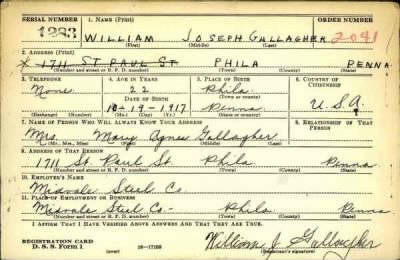 SERIAL NUMBER 1. NAME (Print) ORDER NUMBER
1283 WILLIAM JOSEPH GALLAGHER 2041
(First) (Middle) (Last)
2. ADDRESS (Print)
x 1711 ST PAUL ST. PHILA PENNA
(Number and street or R. F. D. number) (Town) (County) (State)
3. TELEPHONE 4. AGE IN YEARS 5. PLACE OF BIRTH 6. COUNTRY OF CITIZENSHIP
None 22 Phila.
DATE OF BIRTH (Town or county)
10-19-1917 Penna U.S.A.
(Exchange) (Number) (Mo.) (Day) (Yr.) (State or country)
7. NAME OF PERSON WHO WILL ALWAYS KNOW YOUR ADDRESS 8. RELATIONSHIP OF THAT PERSON
Mrs. Mary Agnes Gallagher
(Mr., Mrs., Miss) (First) (Middle) (Last)
9. ADDRESS OF THAT PERSON
1711 St. Paul St. Phila. Penna
(Number and street or R. F. D. number) (Town) (County) (State)
10. EMPLOYER'S NAME
Midvale Steel Co.
11. PLACE OF EMPLOYMENT OR BUSINESS
Midvale Steel Co- Phila. Penna
(Number and street or R. F. D. number) (Town) (County) (State)
I AFFIRM THAT I HAVE VERIFIED ABOVE ANSWERS AND THAT THEY ARE TRUE.
REGISTRATION CARD
D. S. S. FORM 1 (over) 16-17105 William J. Gallagher
(Registrant's signature)